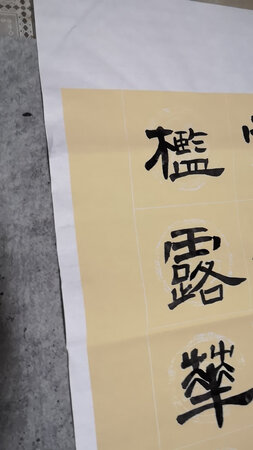 檻露華